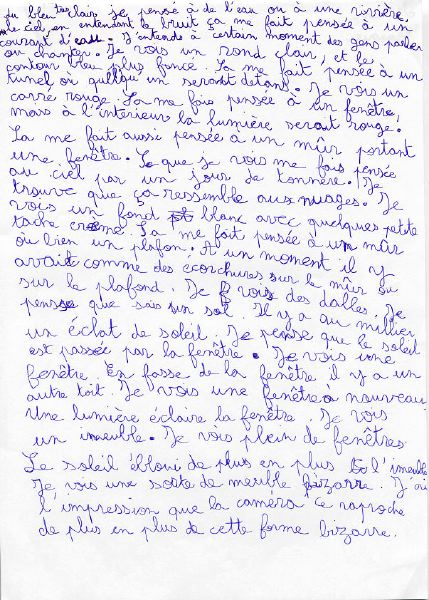 du bleu très clair je pensé à de l'eau ou à une rivière.
ciel, en entendant le bruit ça me fait pensée à un
courant d'eau. J'entends à certain moment des gens parler
ou chanter. Je vois un rond clair, et le
contour bleu plus foncé. Sa me fait pensée à un
tunel où quelqu'un serait dedans. Je vois un
carré rouge. Sa me fais pensée à un fenêtre,
mais à l'intérieur la lumière serait rouge.
Sa me fait aussi pensée a un mûr portant
une fenêtre. Se que je vois me fais pensée
au ciel par un jour de tonnère. Je
trouve que ça ressemble aux nuages. Je
vois un fond blanc avec quelques petite
tache crème. Sa me fait pensée à un mûr
ou bien un plafon. A un moment il y
avait comme des écorchures sur le mûr ou
sur le plafond. Je vois des dalles. Je
pense que sais un sol. Il y a au millier
un éclat de soleil. Je pense que le soleil
est passée par la fenêtre. Je vois une
fenêtre. En fasse de la fenêtre il y a un
autre toit. Je vois une fenêtre à nouveau.
Une lumière éclaire la fenêtre. Je vois
un imeuble. Je vois plein de fenêtres
Le soleil ébloui de plus en plus l'imeuble
Je vois une sorte de meuble bizarre. J'ai
l'impression que la caméra ce raproche
de plus en plus de cette forme bizarre.